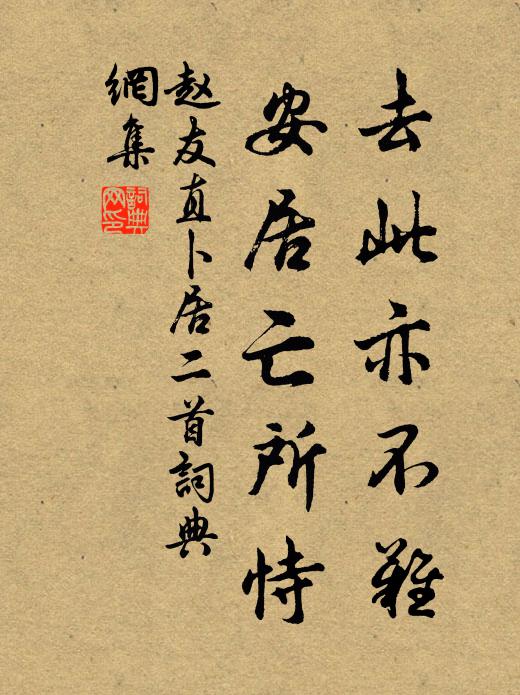 去此亦不難
安居亡所恃
赵友直卜居二首詞典
網集
詞典
网印